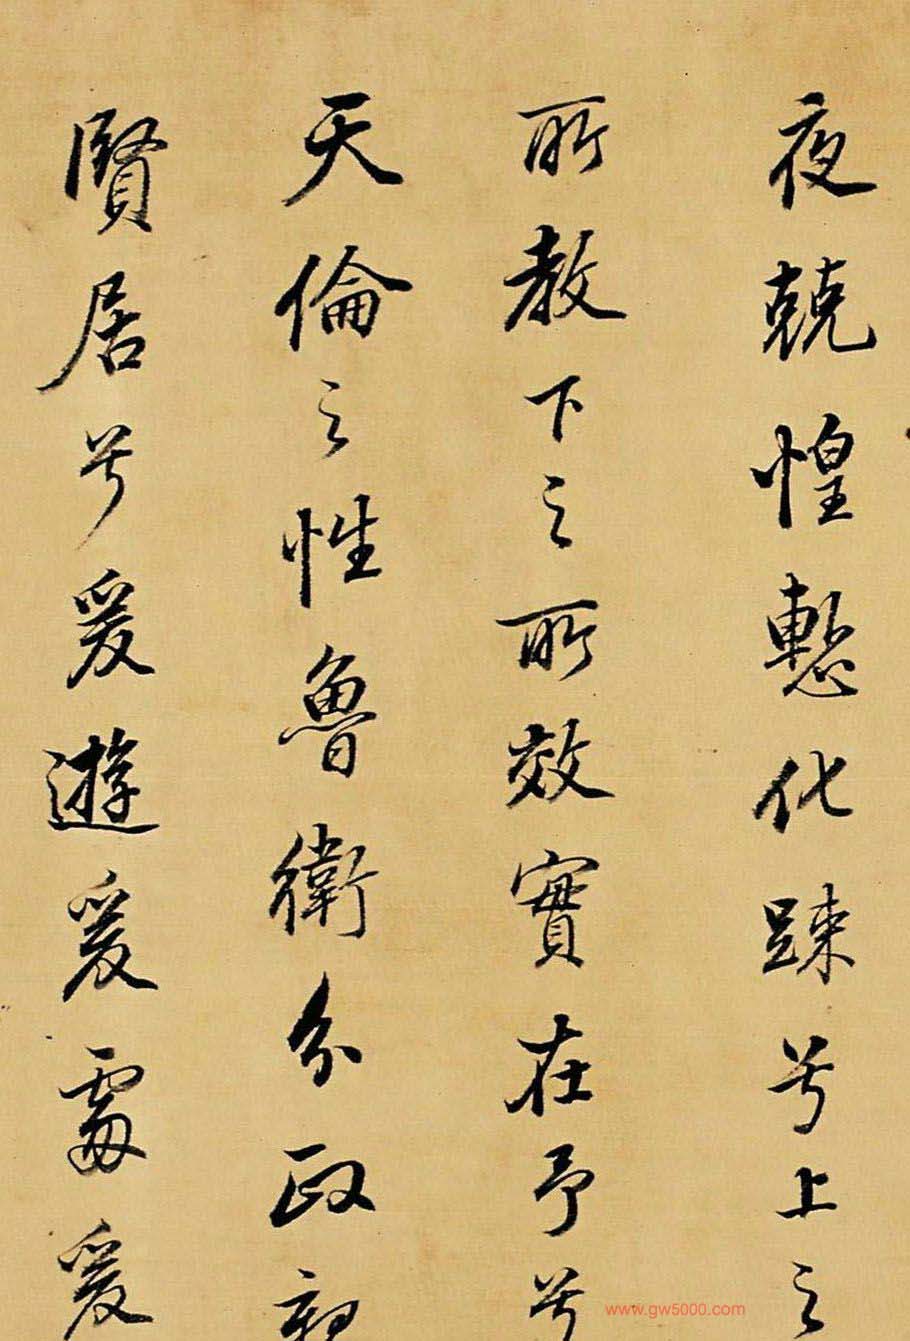 夜兢惶慙化踈兮上之
所教下之所效實在予兮
天倫之性魯衛分政親
賢居兮爰遊爰處爰
www.gw5000.com